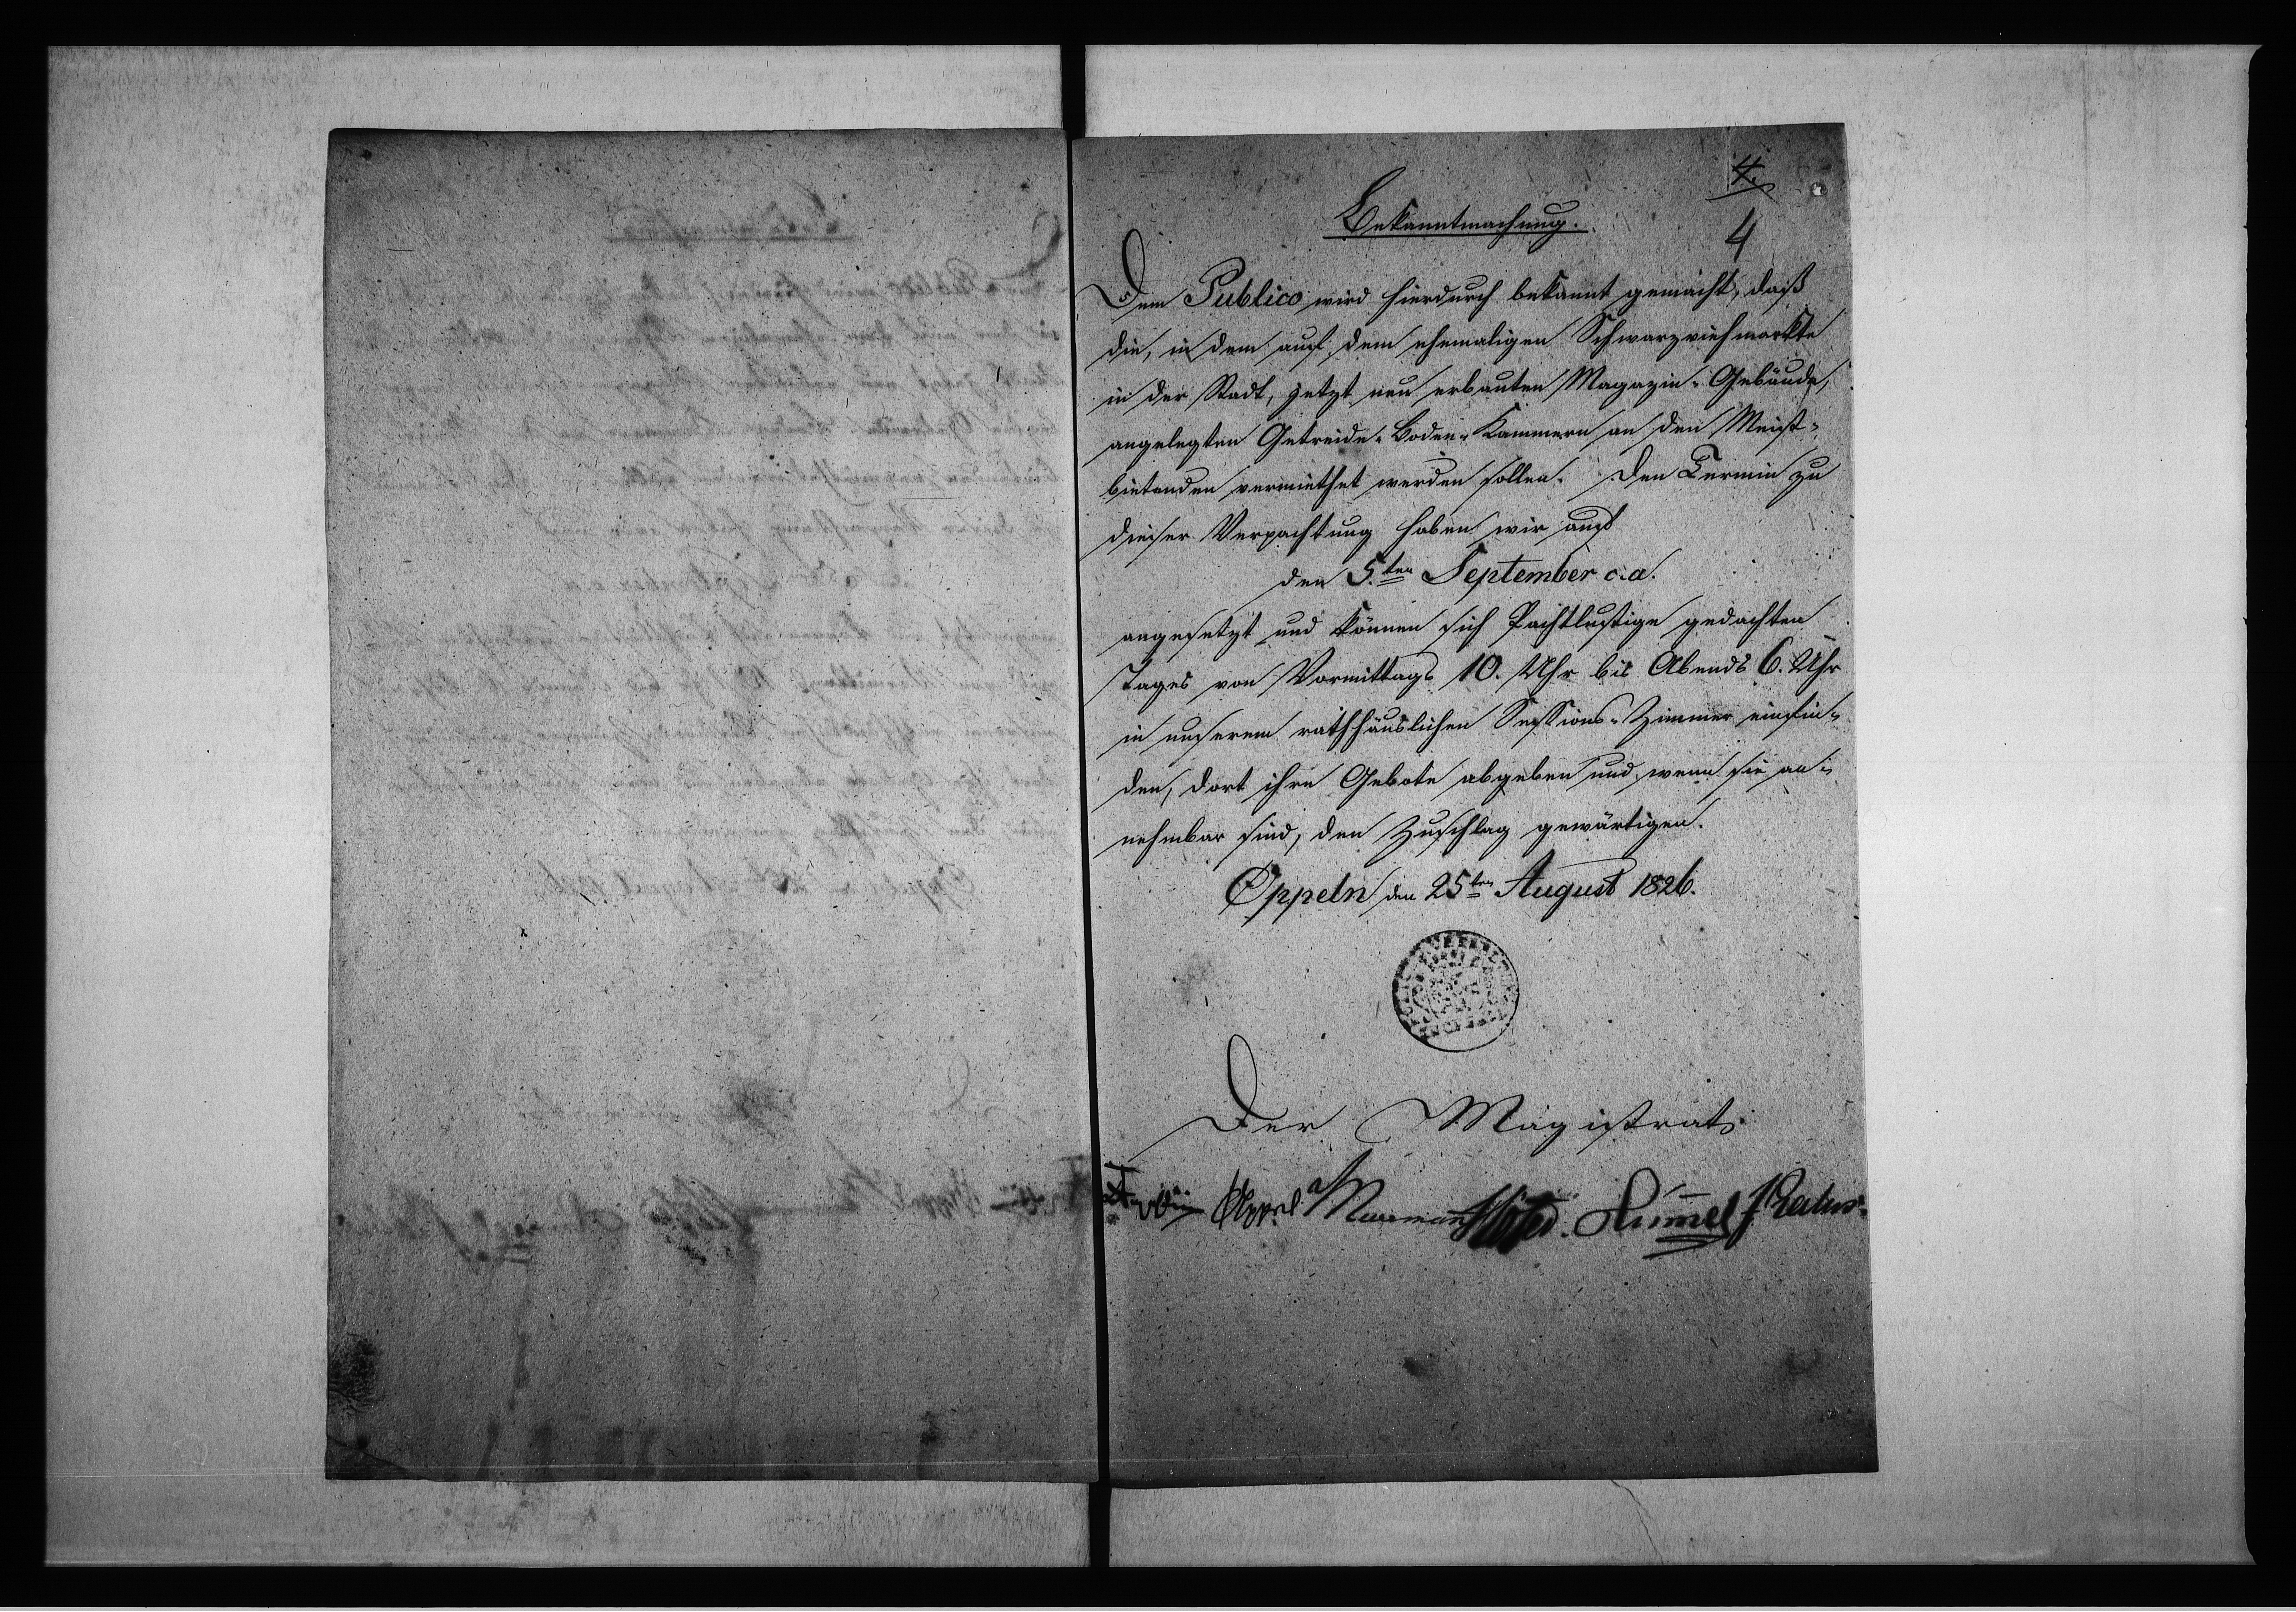 4.
4
Bekanntmachung.
Dem Publico wird hierdurch bekannt gemacht, daß
die, in dem auf dem ehemaligen Schwarzviehmarkte
in der Stadt, jetzt neu erbauten Magazin-Gebäude,
angelegten Getreide-Boden-Kammern an den Meist-
bietenden vermiethet werden sollen. Den Termin zu
dieser Verpachtung haben wir auf
den 5.ten September c. a.
angesetzt und können sich Pachtlustige gedachten
Tages von Vormittags 10. Uhr bis Abends 6. Uhr
in unserem rathhäuslichen Sessions-Zimmer einfin-
den, dort ihre Gebote abgeben und wenn sie an-
nehmbar sind, den Zuschlag gewärtigen.
Oppeln den 25ten August 1826.
Der Magistrat.